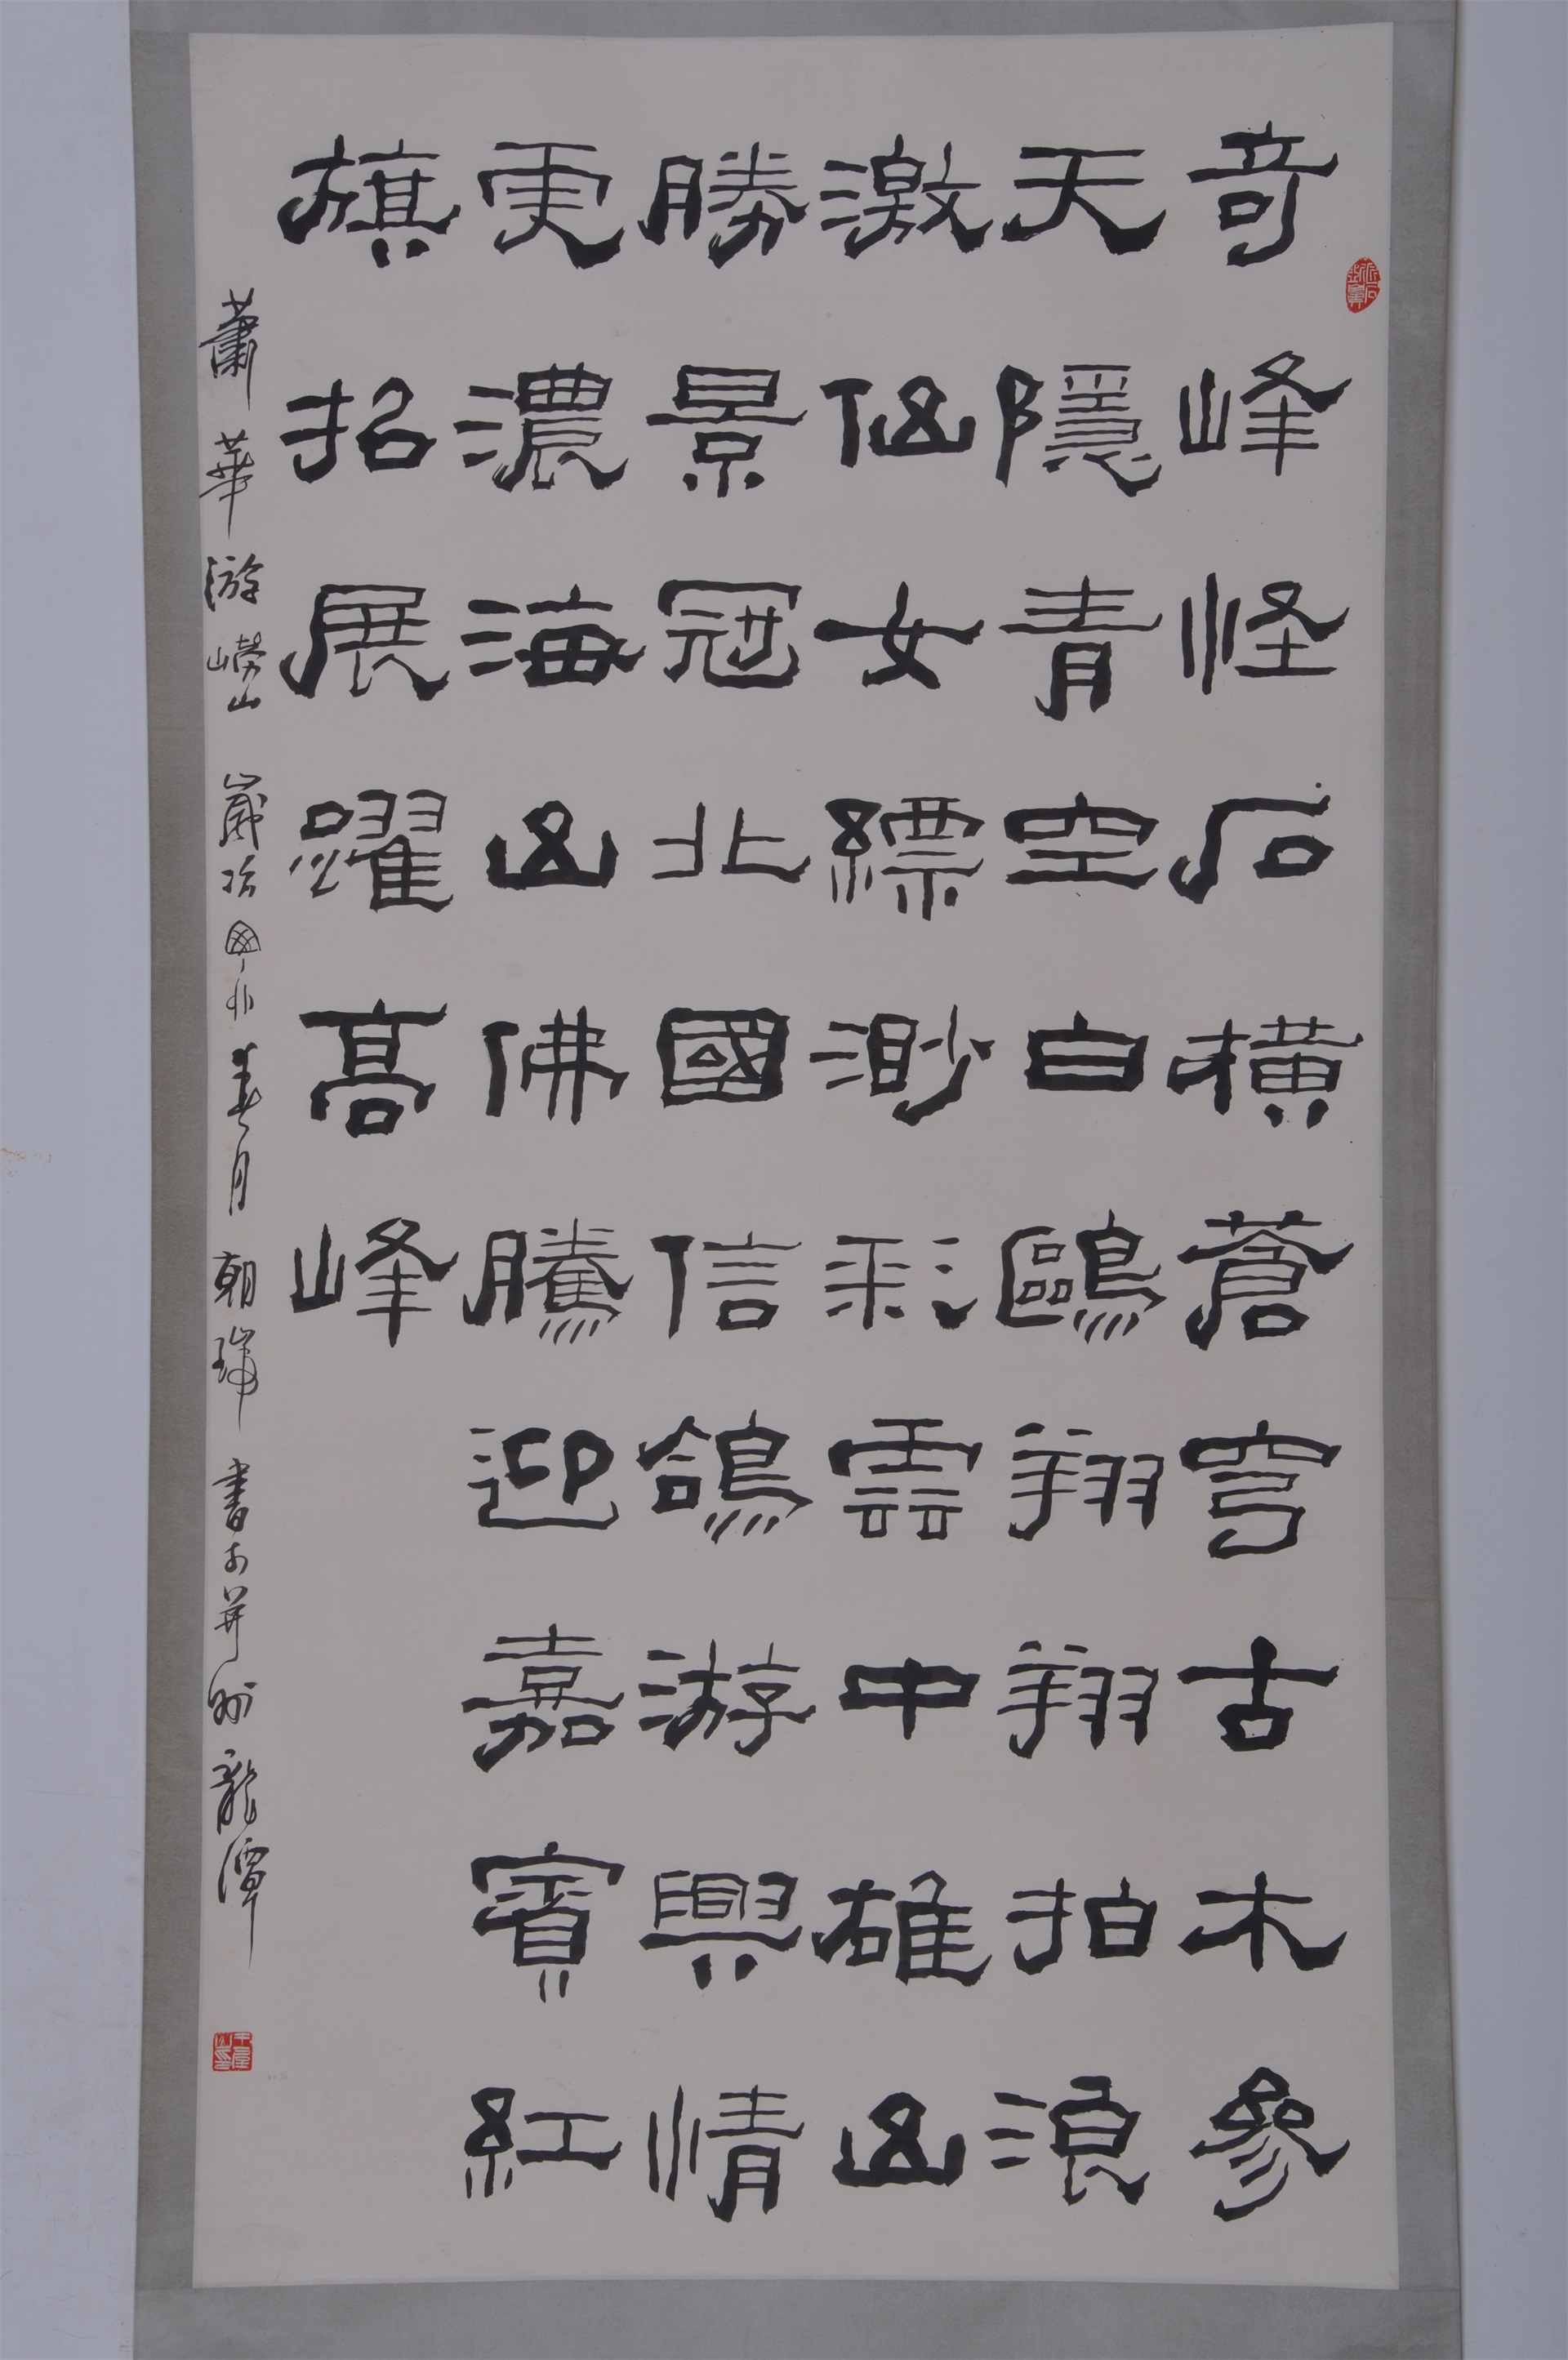 奇峰怪石橫蒼穹古木參
天隱青空白鷗翔翔拍浪
激仙女縹渺彩雲中雄山
勝景冠北國信鴿游興情
更濃海山佛騰迎嘉賓紅
旗招展躍高峰
蕭華游嶗山 歲次 春月朝瑞書於并州龍潭